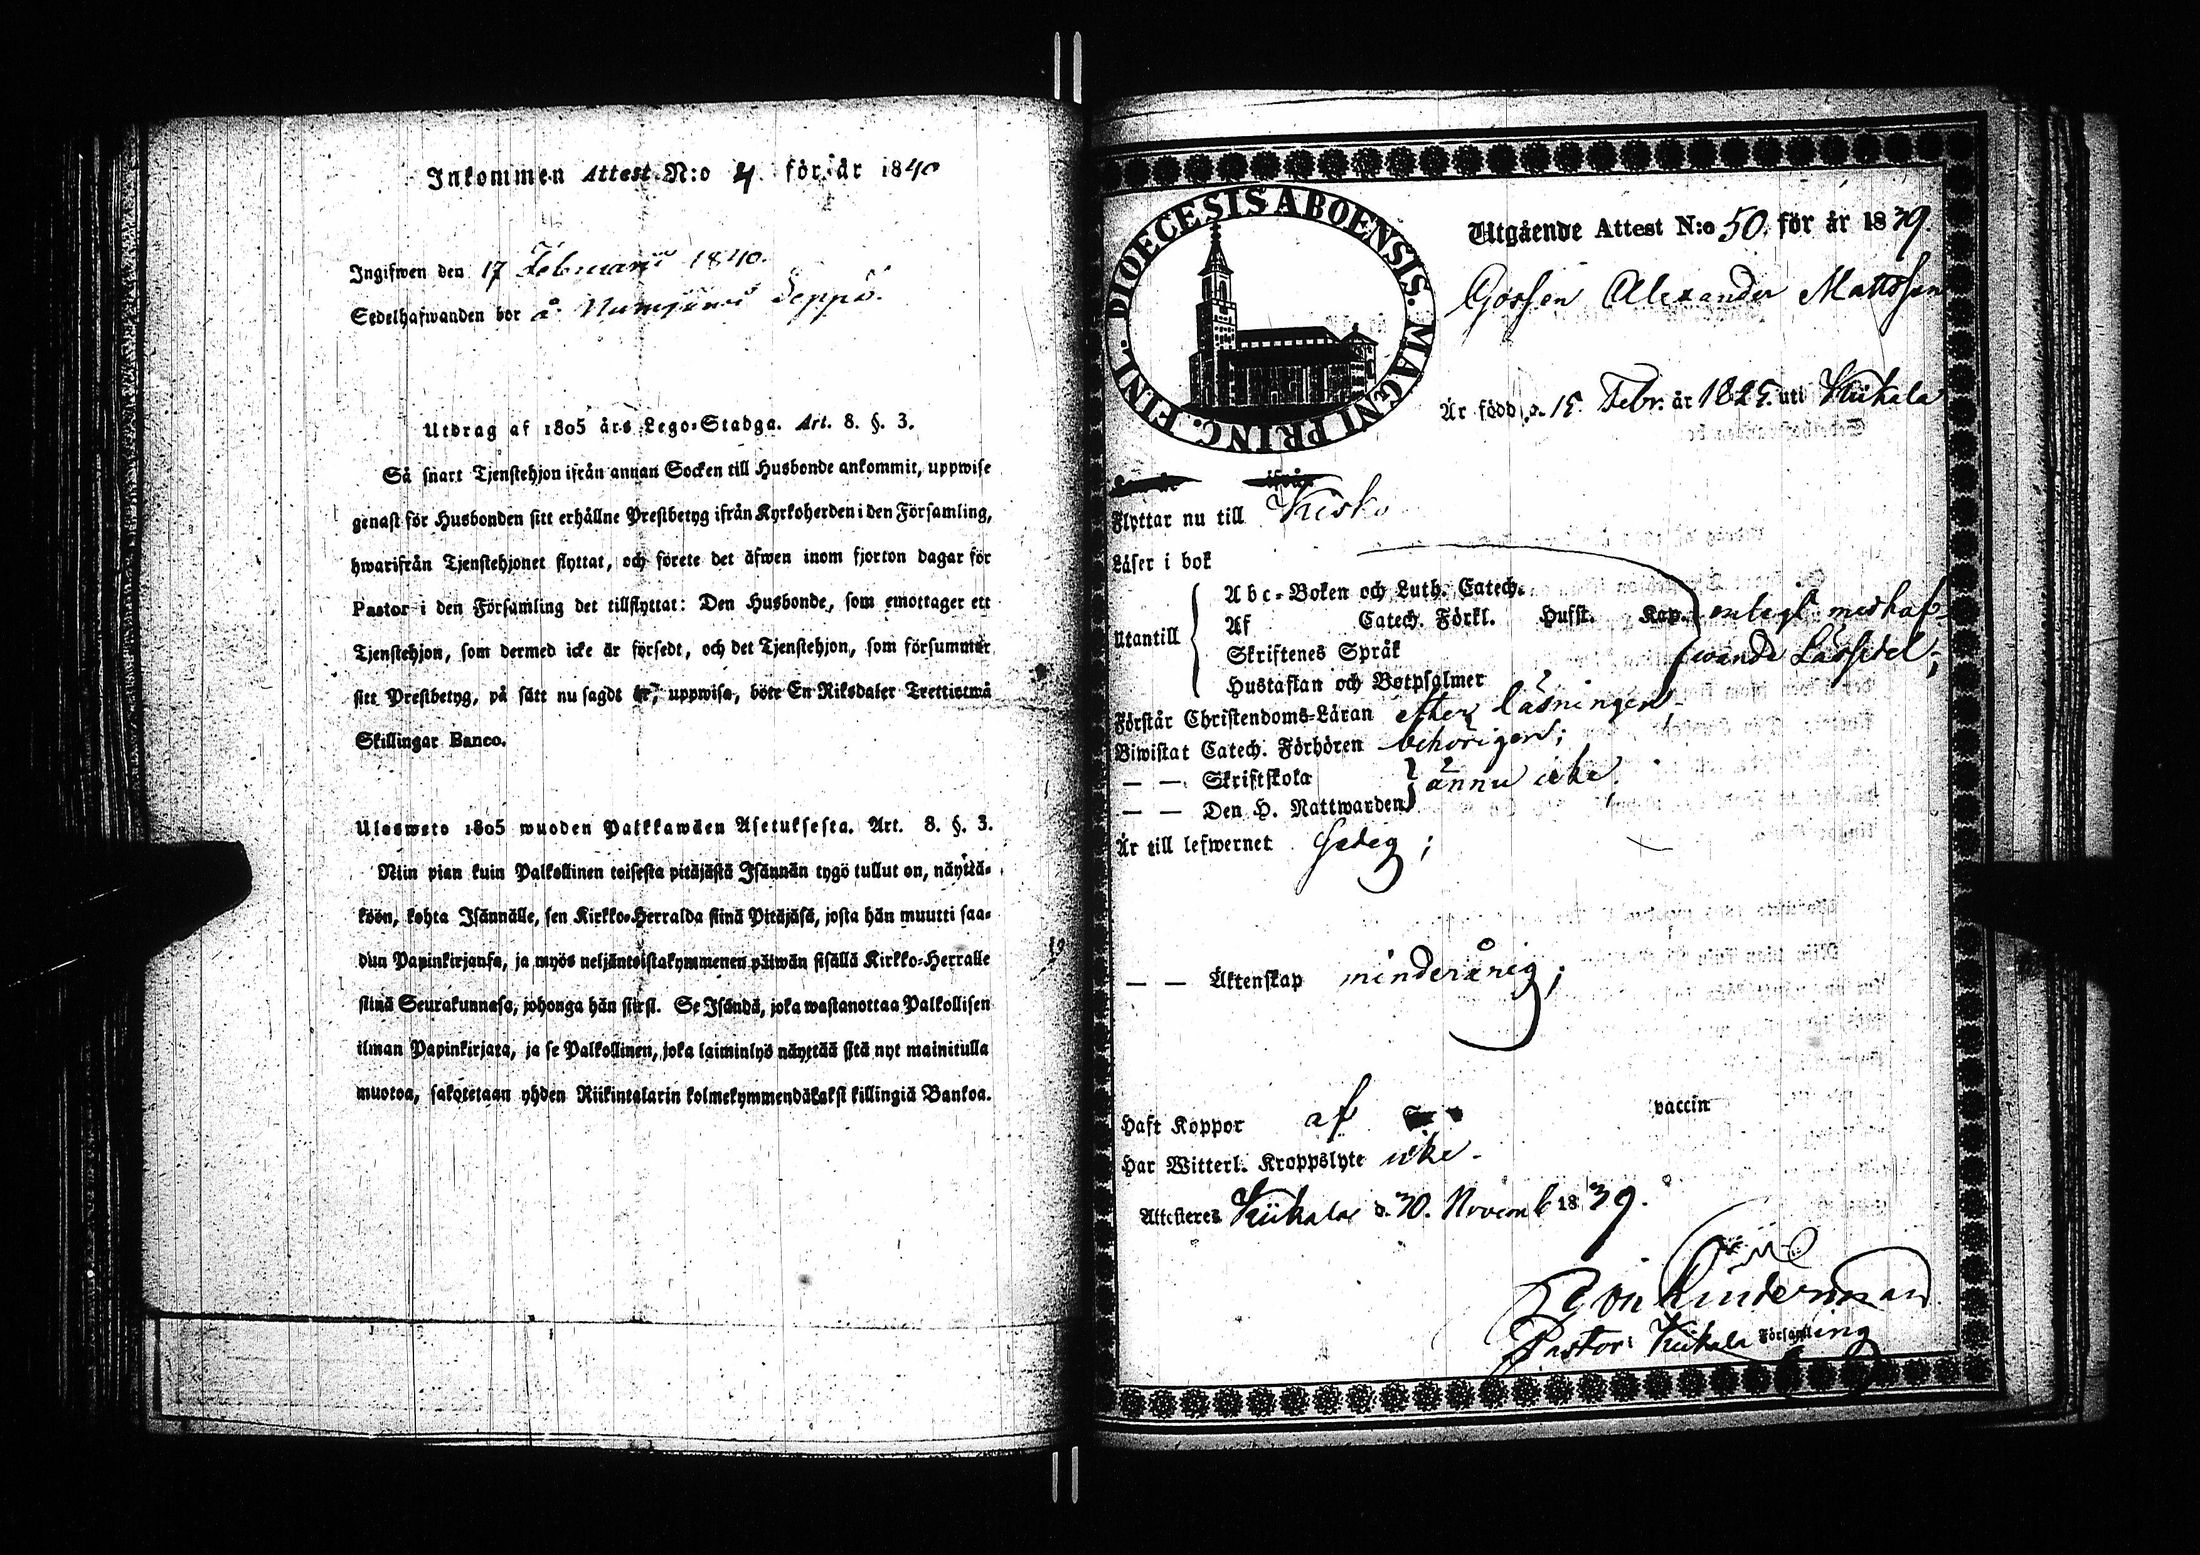 Inkommen Attest N:o 4 för år 1840
Ingifwen den 17 Februarii 1840.
Sedelhafwanden bor å Seppä.
Utdrag af 1805 års Lego-Stadga. Art. 8. §. 3.
Så snart Tjenstehjon ifrån annan Socken till Husbonde ankommit, uppwise
genast för Husbonden sitt erhållne Prestbetyg ifrån Kyrkoherden i den Församling,
hwarifrån Tjenstehjonet flyttat, och förete det äfwen inom fjorton dagar för
Pastor i den Församling det tillflyttat: Den Husbonde, som emottager ett
Tjenstehjon, som dermed icke är försedt, och det Tjenstehjon, som försummar
sitt Prestbetyg, på sätt nu sagdt är, uppwisa, böte En Riksdaler Trettiotwå
Skillingar Banco.
Ulosweto 1805 wuoden Palkkawäen Asetuksesta. Art. 8. §. 3.
Niin pian kuin Palkollinen toisesta pitäjästä Isännän tygö tullut on, näyttä-
köön, kohta Isännälle, sen Kirkko-Herralda siinä Pitäjäsä, josta hän muutti saa-
dun Papinkirjansa, ja myös neljäntoistakymmenen päiwän sisällä Kirkko-Herralle
siinä Seurakunnasa, johonga hän siirsi. Se Isändä, joka wastanottaa Palkollisen
ilman Papinkirjata, ja se Palkollinen, joka laiminlyö näyttää sitä nyt mainitulla
muotoa, sakotetaan yhden Riikintalarin kolmekymmendäkaksi killingiä Bankoa.
DIOECESIS ABOENSIS. MAGNI PRINC. FINL.
Utgående Attest N:o 50. för år 1839.
Gossen Alexander Mattsson
Är född d. 15 Febr. år 1825. uti Kiikala
ifrån
Flyttar nu till Kisko
Läser i bok
Utantill
Abc-Boken och Luth. Catech.
Af Catech. Förkl. Hufst. Kap. enligt medhaf-
Skriftenes Språk wande Läsesedel;
Hustaflan och Botpsalmer
Förstår Christendoms-Läran efter läsningen;
Biwistat Catech. Förhören behörigen;
— — Skriftskola ännu icke.
— — Den H. Nattwarden
Är till lefwernet sedig;
— — Äktenskap minderårig;
Haft Koppor af vaccin
Har Witterl. Kroppslyte icke.
Attesteres Kiikala d. 30. Novemb 1839.
Pastor i Kiikala Församling